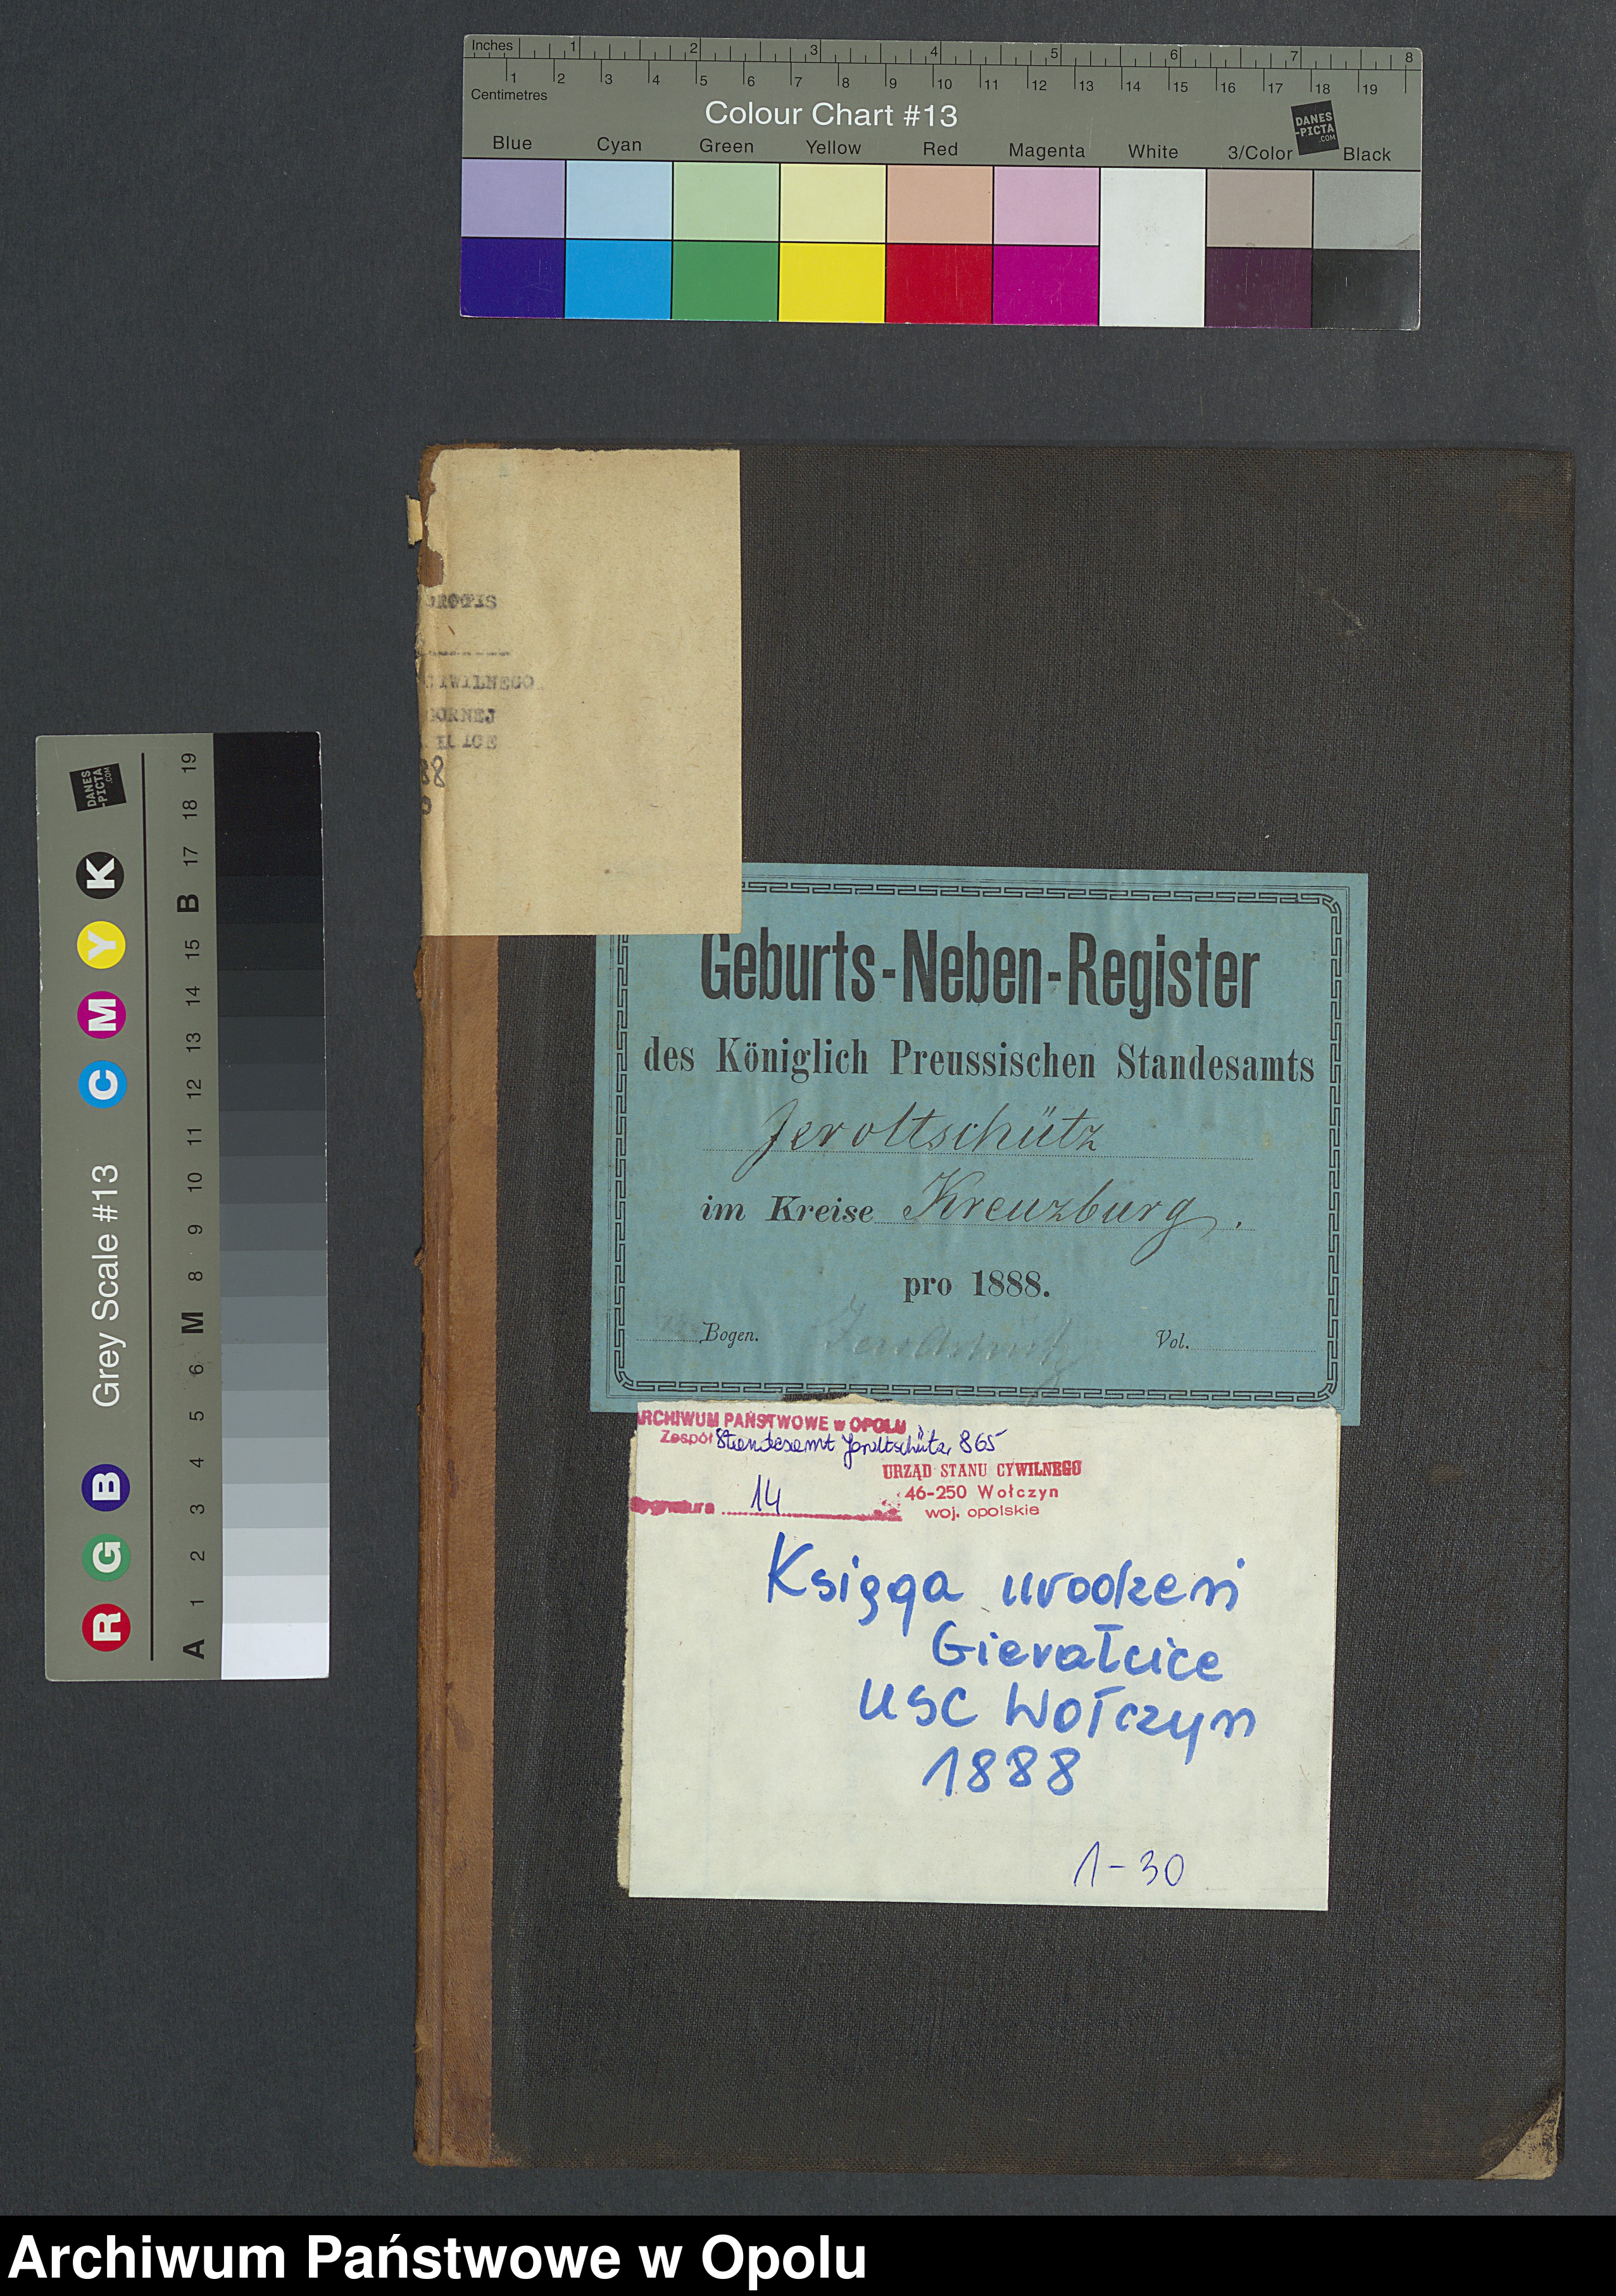 Inches 1 2 3 4 5 6 7 8
1 2 3 4 5 6 7 8 9 10 11 12 13 14 15 16 17 18 19
Centimetres
Colour Chart #13
DANES
-PICTA
.COM
Blue Cyan Green Yellow Red Magenta White 3/Color Black
Grey Scale #13
R G B C M Y K
DANES
-PICTA
.COM
A 1 2 3 4 5 6 M 8 9 10 11 12 13 14 15 B 17 18 19
CYWILNEGO
88
Geburts-Neben-Register
des Königlich Preussischen Standesamts
Jeroltschütz
im Kreise Kreuzburg.
pro 1888.
Bogen. Vol.
ARCHIWUM PAŃSTWOWE w OPOLU
Zespół Standesamt Jeroltschütz, 865
URZĄD STANU CYWILNEGO
46-250 Wołczyn
woj. opolskie
Sygnatura 14
Księga urodzeń
Gierałcice
USC Wołczyn
1888
1-30
Archiwum Państwowe w Opolu